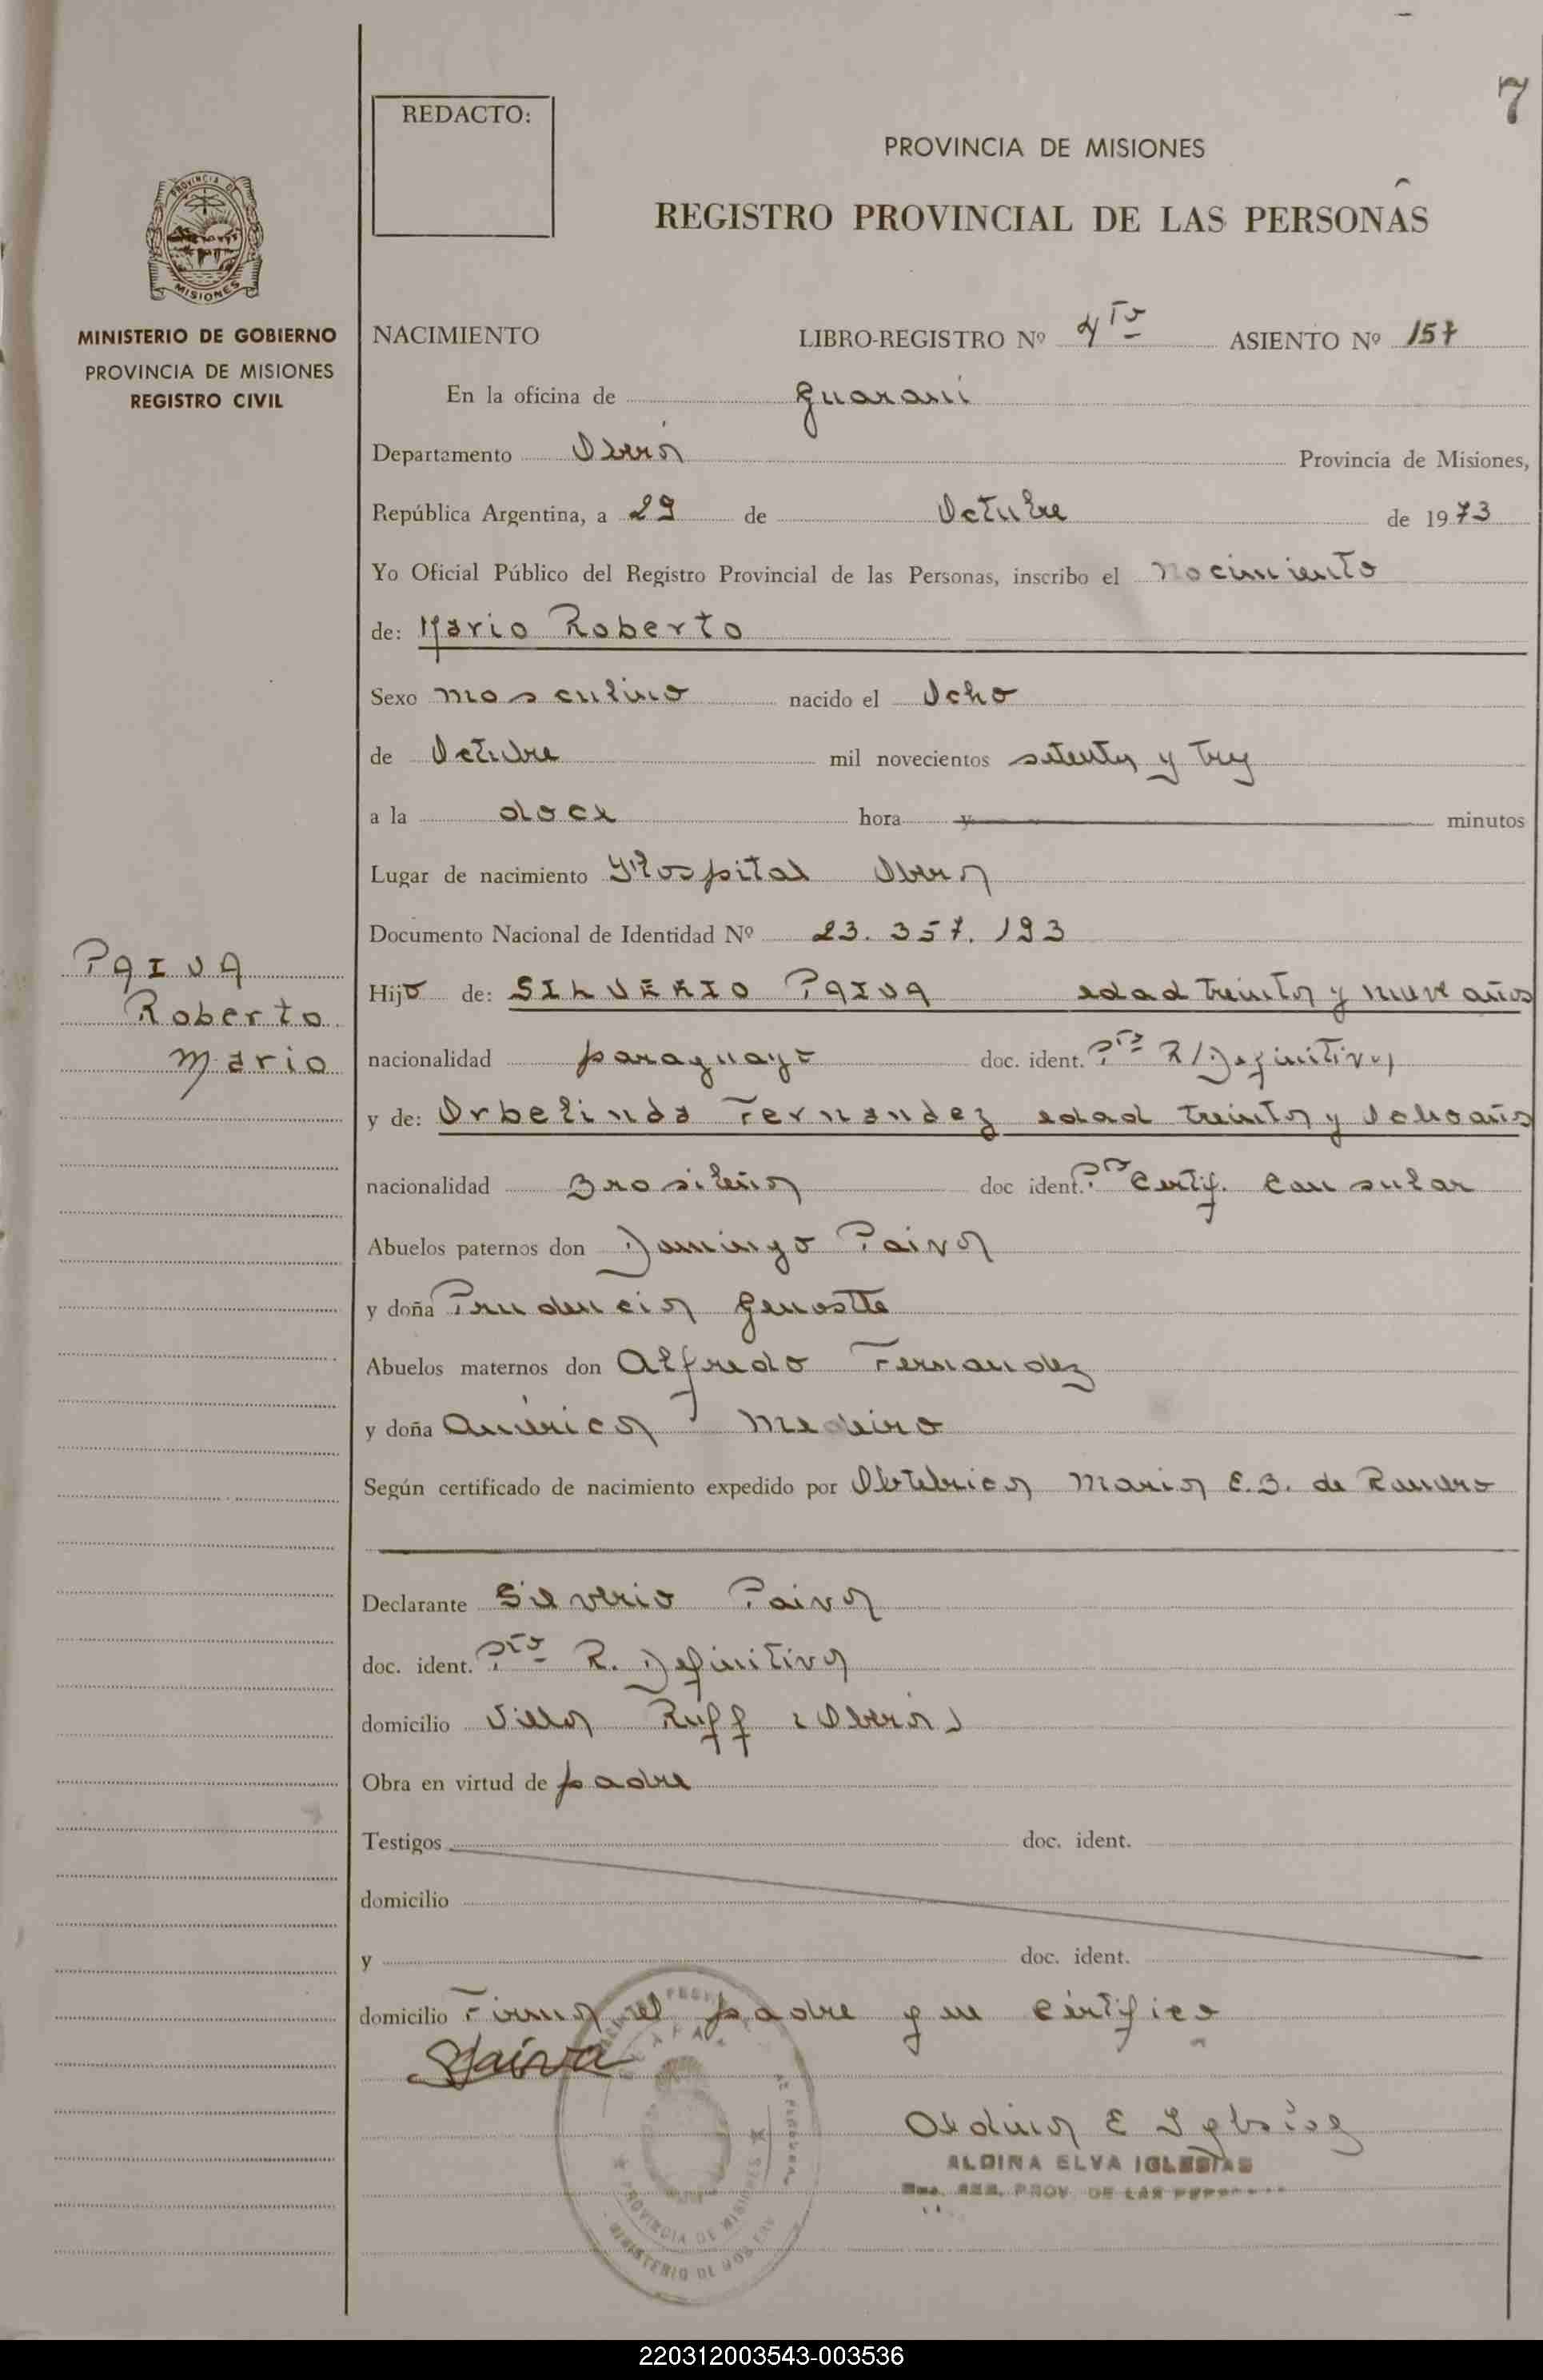 7
REDACTO:
PROVINCIA DE MISIONES
REGISTRO PROVINCIAL DE LAS PERSONAS
PROVINCIA DE
MISIONES
MINISTERIO DE GOBIERNO
PROVINCIA DE MISIONES
REGISTRO CIVIL
NACIMIENTO LIBRO-REGISTRO Nº 4to ASIENTO Nº 157
En la oficina de Guaraní
Departamento Oberá Provincia de Misiones,
República Argentina, a 29 de Octubre de 1973
Yo Oficial Público del Registro Provincial de las Personas, inscribo el Nacimiento
de: Mario Roberto
Sexo masculino nacido el Ocho
de Octubre mil novecientos setenta y tres
a la doce hora y minutos
Lugar de nacimiento Hospital Oberá
Documento Nacional de Identidad Nº 23.357.193
PAIVA
Roberto
Mario
Hijo de: SILVERIO PAIVA edad treinta y nueve años
nacionalidad paraguayo doc. ident. Pto R/Definitiva
y de: Orbelinda Fernandez edad treinta y Ocho años
nacionalidad Brasileña doc ident. Pto Certif. Consular
Abuelos paternos don Domingo Paiva
y doña Prudencia
Abuelos maternos don Alfredo Fernandez
y doña América Medeiro
Según certificado de nacimiento expedido por Obstetrica Maria E.B. de
Declarante Silverio Paiva
doc. ident. Pto R. Definitiva
domicilio Villa Ruff (Oberá)
Obra en virtud de padre
Testigos doc. ident.
domicilio
y doc. ident.
domicilio Firma el padre que certifico
SPaiva
Aldina E Iglesias
ALDINA ELVA IGLESIAS
REG. PROV. DE LAS
PROVINCIA DE MISIONES
MINISTERIO DE GOBIERNO
220312003543-003536